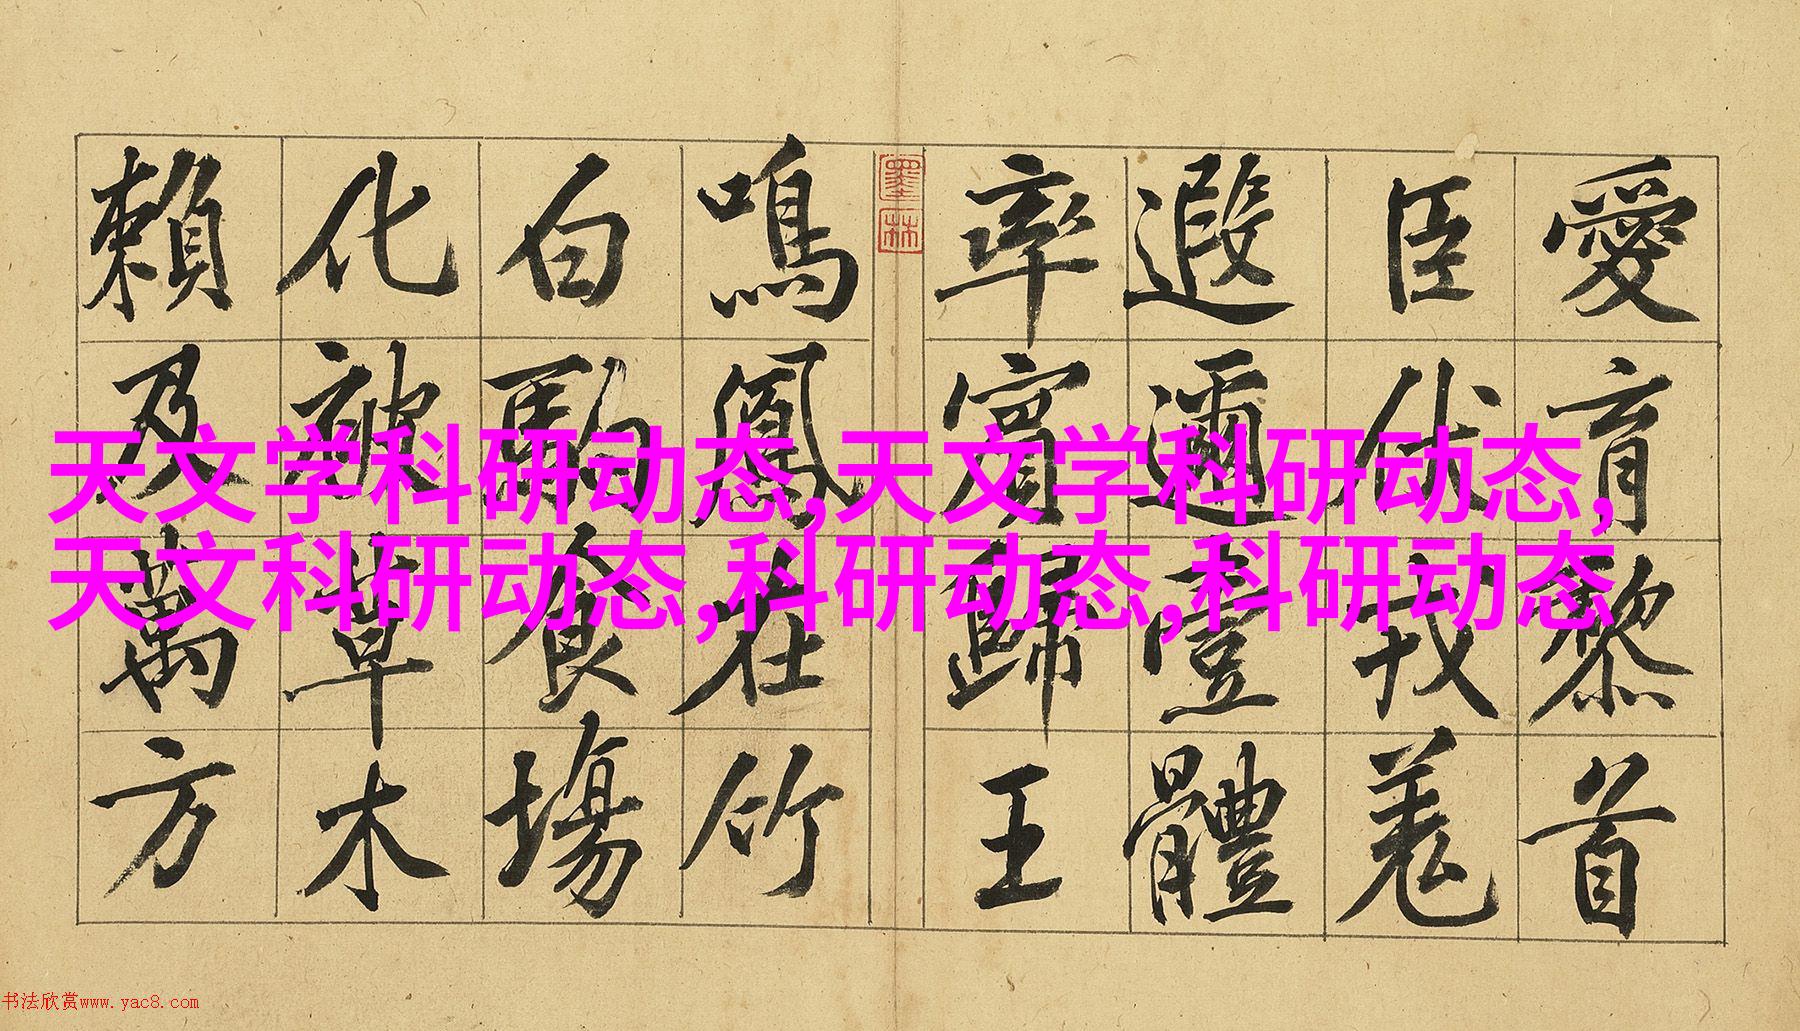 愛育黎首
臣伏戎羌
遐邇壹體
率賓歸王
墨林
鳴鳳在竹
白駒食場
化被草木
賴及萬方
天文学科研动态,天文学科研动态,
天文科研动态,科研动态,科研动态
书法欣赏www.yac8.com